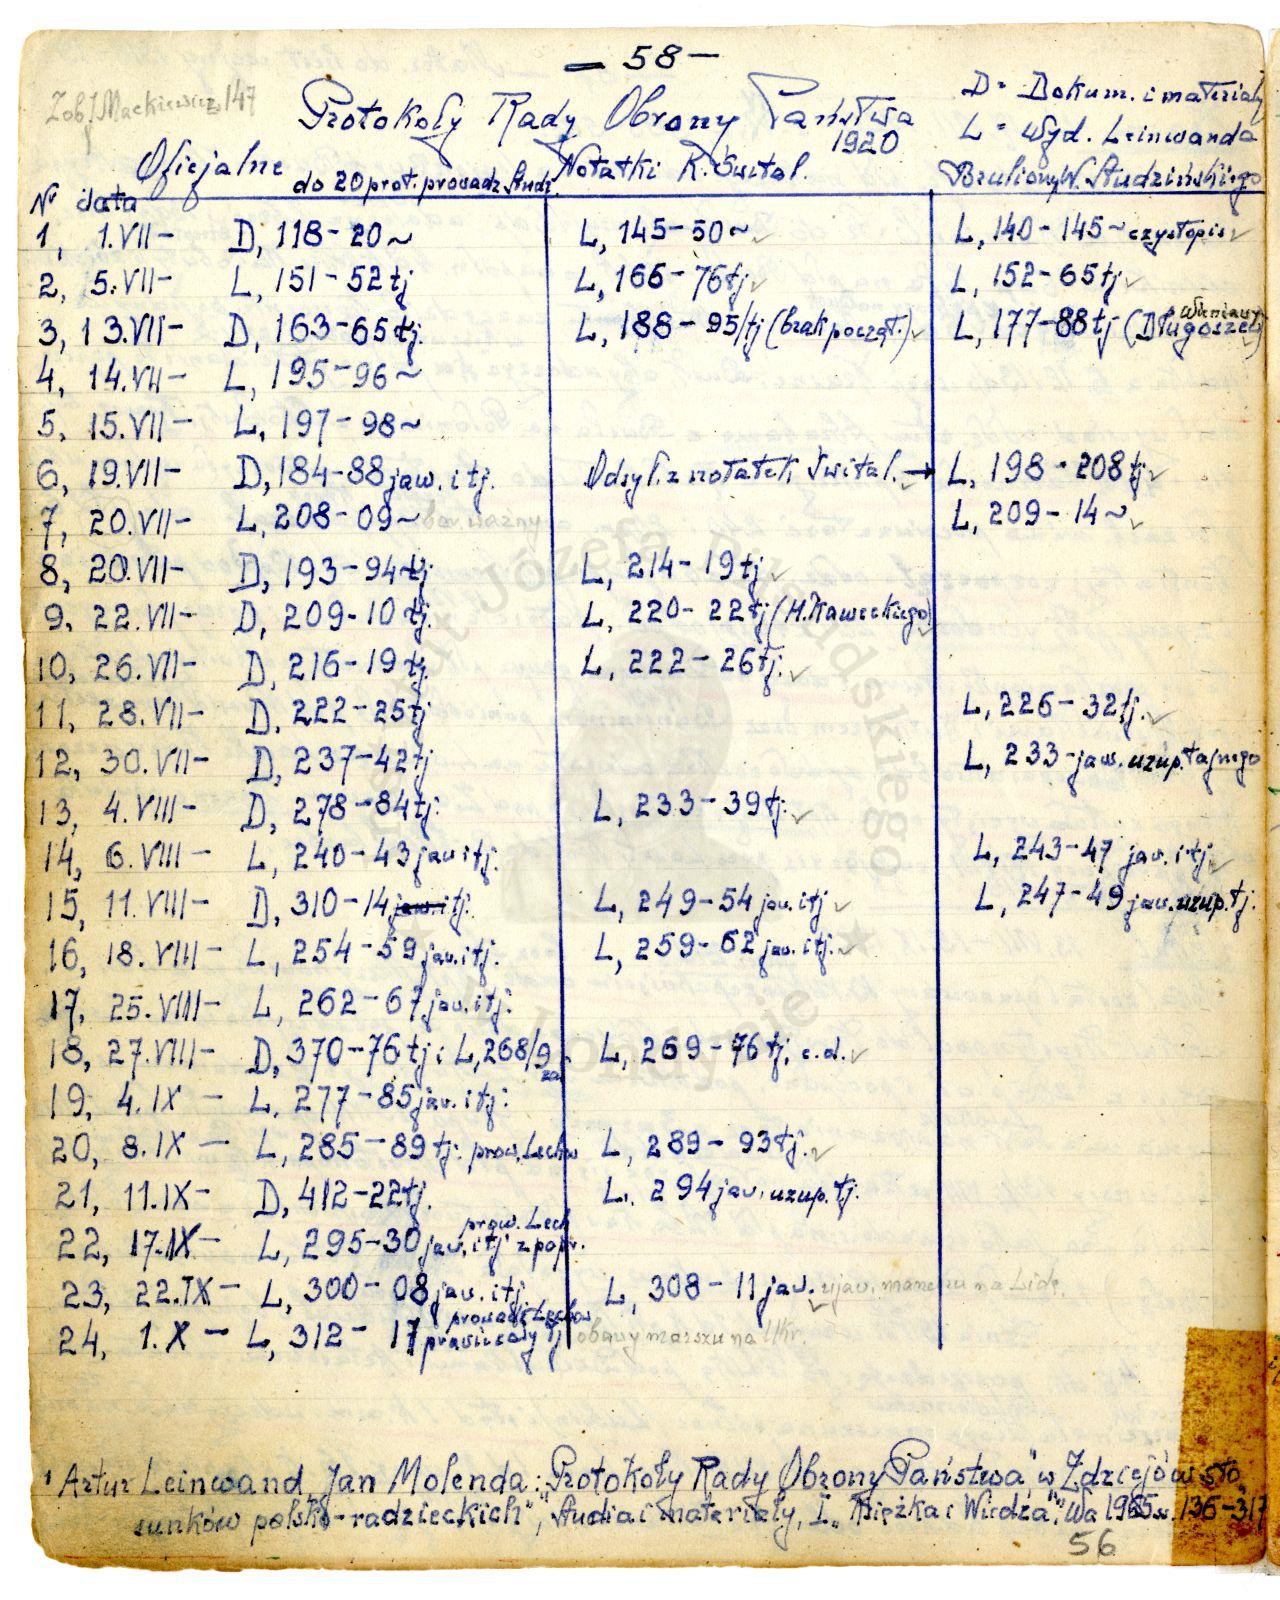 — 58 —
Zob. J. Mackiewicz, 147
D = Dokum. i materiały
Protokoły Rady Obrony Państwa
1920
L = wyd. Leinwanda
Oficjalne do 20 prot. prowadz. Studz. Notatki K. Śwital. Bruliony W. Studzińskiego
Nr data
1, 1.VII – D, 118–20~ L, 145–50~ L, 140–145~ czystopis
2, 5.VII – L, 151–52 tj L, 166–76 tj L, 152–65 tj
3, 13.VII – D, 163–65 tj. L, 188–95/tj (brak począt.) L, 177–88 tj (Wieniawy Długoszew)
4, 14.VII – L, 195–96~
5, 15.VII – L, 197–98~
6, 19.VII – D, 184–88 jaw. i tj. Odsył. z notatek Śwital. → L, 198–208 tj
7, 20.VII – L, 208–09~ ważny L, 209–14~
8, 20.VII – D, 193–94 tj L, 214–19 tj
9, 22.VII – D, 209–10 tj. L, 220–22 tj (H. Kaweckiego)
10, 26.VII – D, 216–19 tj. L, 222–26 tj.
11, 28.VII – D, 222–25 tj L, 226–32 tj.
12, 30.VII – D, 237–42 tj L, 233 – jaw. uzup. tajnego
13, 4.VIII – D, 278–84 tj. L, 233–39 tj.
14, 6.VIII – L, 240–43 jaw i tj. L, 243–47 jaw. i tj.
15, 11.VIII – D, 310–14 jaw. i tj. L, 249–54 jaw. i tj L, 247–49 jaw. uzup. tj.
16, 18.VIII – L, 254–59 jaw. i tj. L, 259–62 jaw. i tj.
17, 25.VIII – L, 262–67 jaw. i tj.
18, 27.VIII – D, 370–76 tj i L, 268/9 zał L, 269–76 tj. c.d.
19, 4.IX – L, 277–85 jaw. i tj.
20, 8.IX – L, 285–89 tj. prow. Lechow L, 289–93 tj.
21, 11.IX – D, 412–22 tj. L. 294 jaw. uzup. tj.
prow. Lech
22, 17.IX – L, 295–30 jaw. i tj z popr.
23, 22.IX – L, 300–08 jaw. i tj. L, 308–11 jaw. ujaw. manewru na Lidę.
prowadz. Lechow
24, 1.X – L, 312–17 prawie cały tj obawy marszu na Ukr.
¹ Artur Leinwand, Jan Molenda: "Protokoły Rady Obrony Państwa" w "Z dziejów sto
sunków polsko-radzieckich", "Studia i materiały, I. "Książka i Wiedza", Wa 1965 ss. 136–317
56
Józefa Piłsudskiego
w Londynie